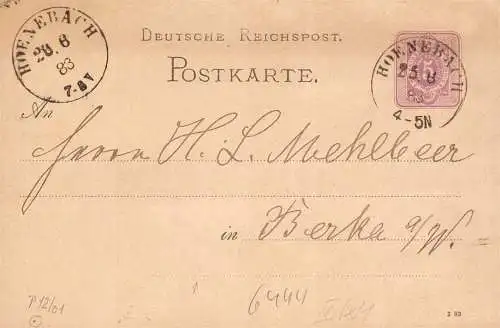 HOENEBACH
26 6
83
7-8V
DEUTSCHE REICHSPOST.
POSTKARTE.
HOENEBACH
25 6
83
4-5N
5
An
Herrn H. L. Mehlbeer
in Berka a/W.
P12/01
6444
2 83